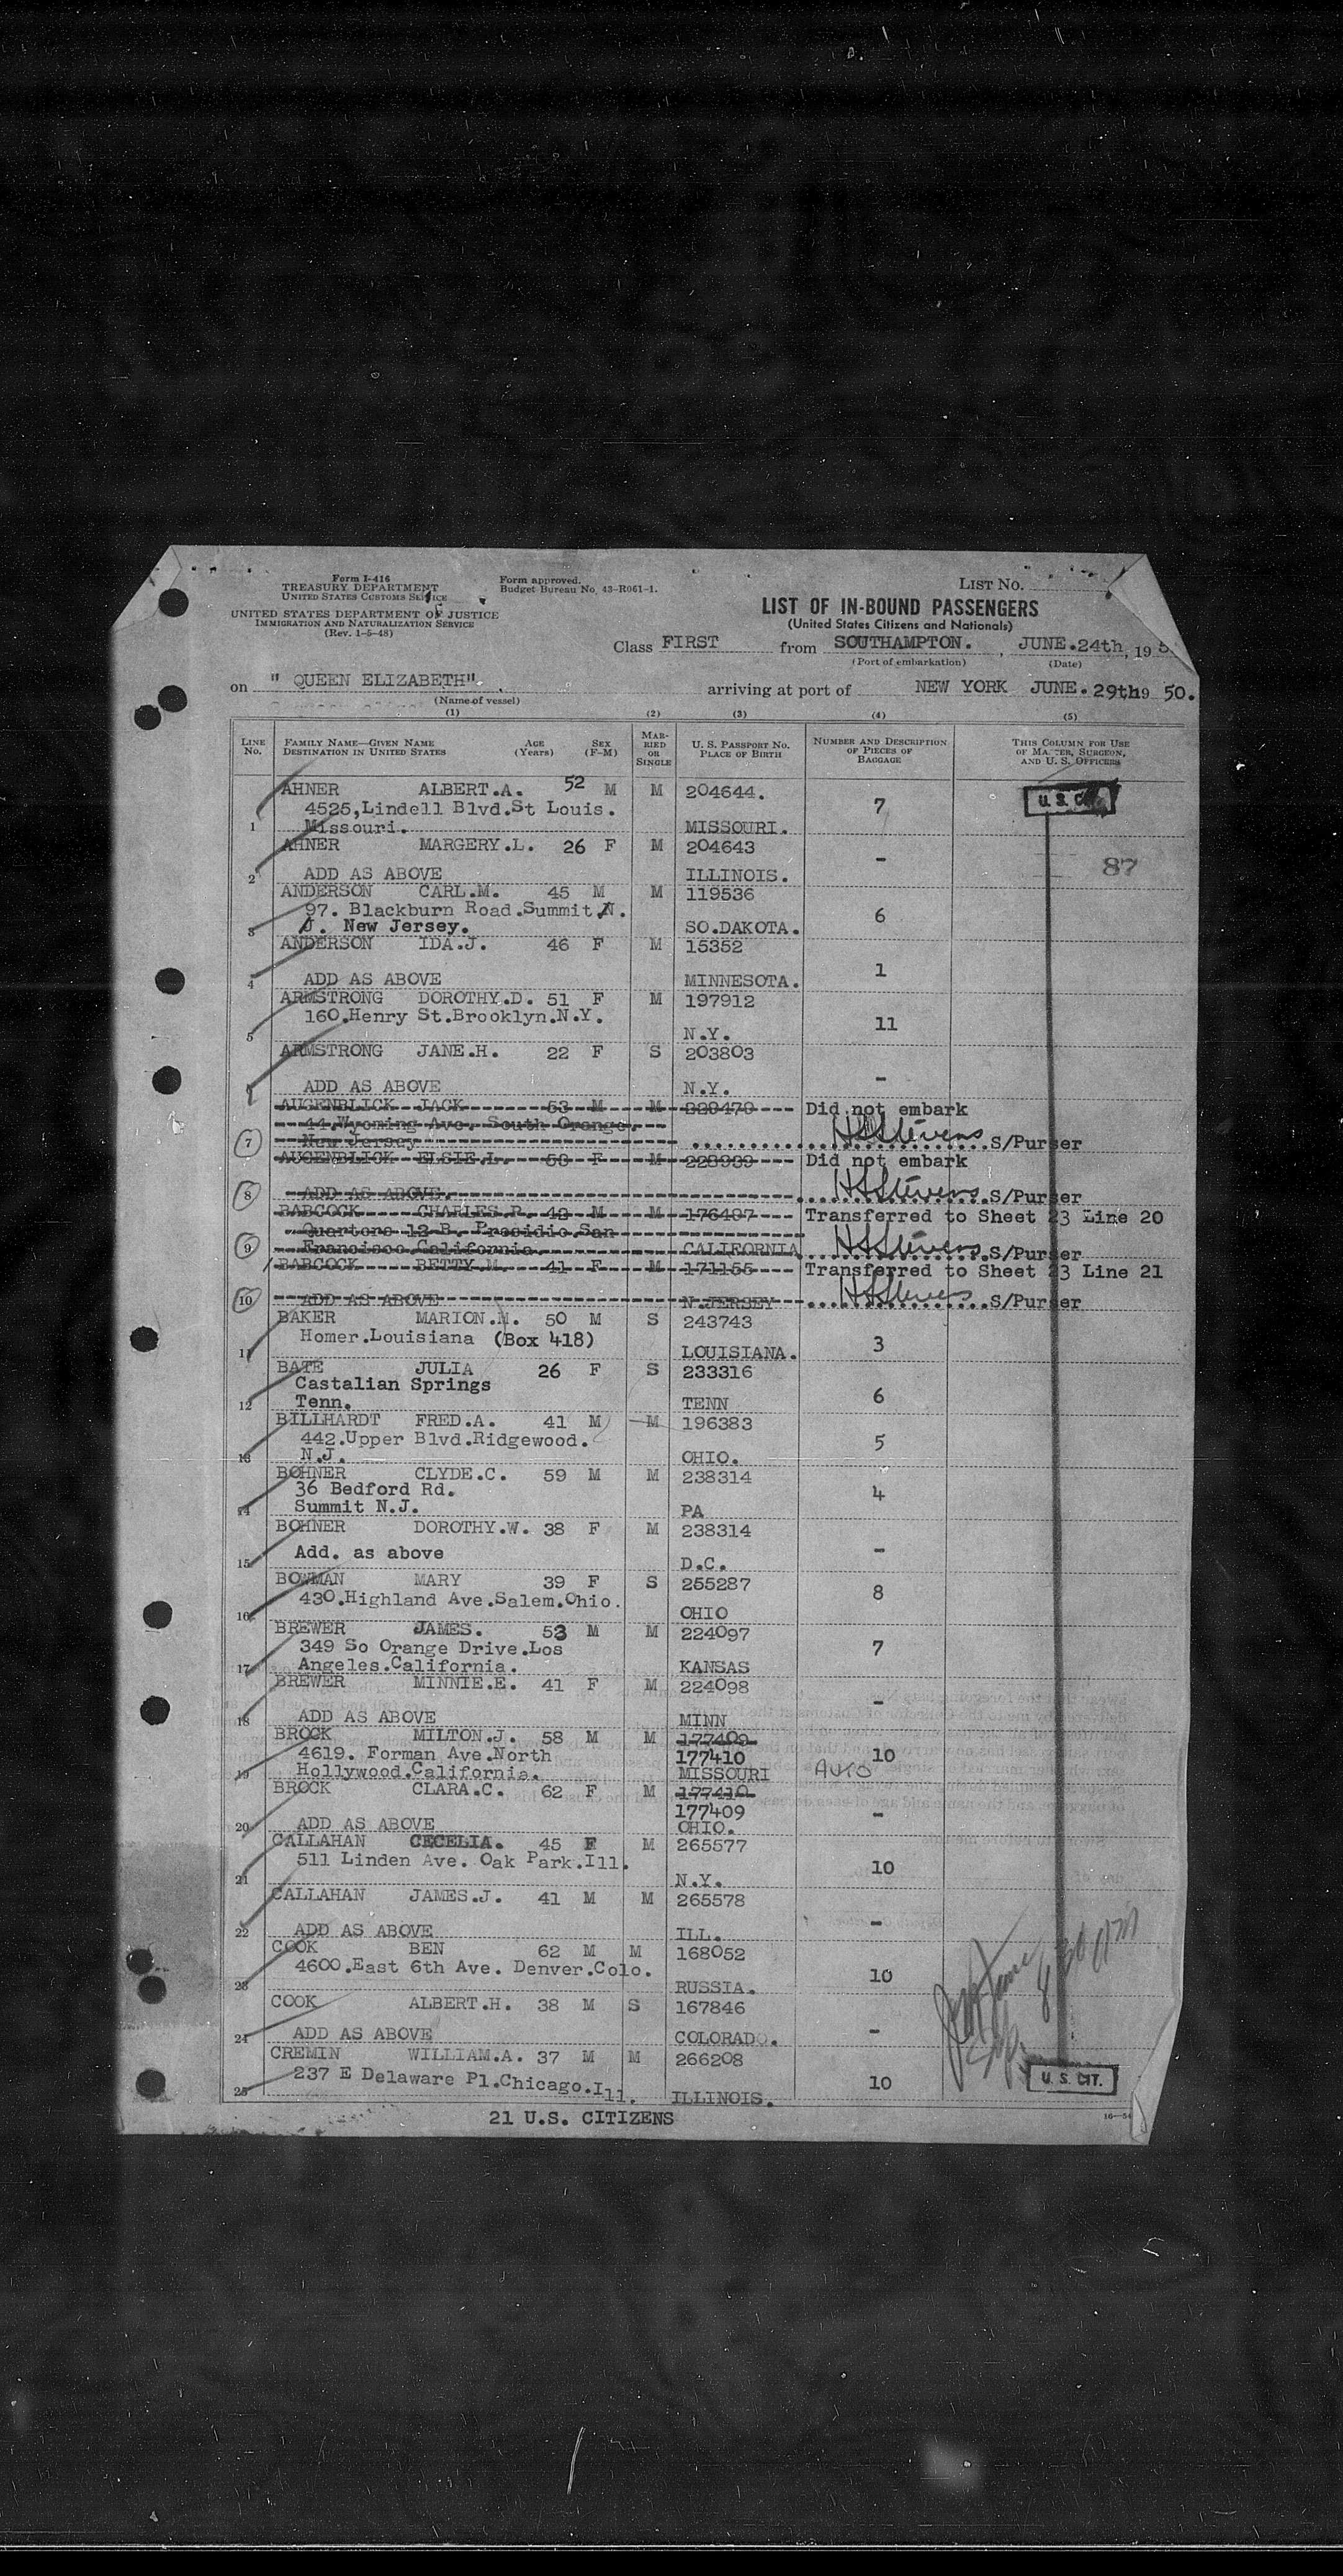 Form I-416
TREASURY DEPARTMENT
UNITED STATES CUSTOMS SERVICE
UNITED STATES DEPARTMENT OF JUSTICE
IMMIGRATION AND NATURALIZATION SERVICE
(Rev. 1-5-48)
Form approved.
Budget Bureau No. 43-R061-1.
LIST NO.
LIST OF IN-BOUND PASSENGERS
(United States Citizens and Nationals)
Class FIRST from SOUTHAMPTON. , JUNE.24th, 195
(Port of embarkation) (Date)
on " QUEEN ELIZABETH" arriving at port of NEW YORK JUNE. 29th9 50.
(Name of vessel)
(1) (2) (3) (4) (5)
LINE NO. FAMILY NAME—GIVEN NAME DESTINATION IN UNITED STATES AGE (Years) SEX (F-M) MARRIED OR SINGLE U. S. PASSPORT NO. PLACE OF BIRTH NUMBER AND DESCRIPTION OF PIECES OF BAGGAGE THIS COLUMN FOR USE OF MASTER, SURGEON, AND U. S. OFFICERS
AHNER ALBERT.A. 52 M M 204644. U. S. CIT.
4525,Lindell Blvd.St Louis. 7
1 Missouri. MISSOURI.
AHNER MARGERY.L. 26 F M 204643
- 87
2 ADD AS ABOVE ILLINOIS.
ANDERSON CARL.M. 45 M M 119536
97. Blackburn Road.Summit.N. 6
3 J. New Jersey. SO.DAKOTA.
ANDERSON IDA.J. 46 F M 15352
1
4 ADD AS ABOVE MINNESOTA.
ARMSTRONG DOROTHY.D. 51 F M 197912
160.Henry St.Brooklyn.N.Y. 11
5 N.Y.
ARMSTRONG JANE.H. 22 F S 203803
6 ADD AS ABOVE N.Y. -
AUGENBLICK JACK 53 M M 220470 Did not embark
44.Wyoming Ave. South Orange.
7 New Jersey HSStevens S/Purser
AUGENBLICK ELSIE.L. 50 F M 228909 Did not embark
8 ADD AS ABOVE. HSStevens S/Purser
BABCOCK CHARLES.R. 42 M M 176407 Transferred to Sheet 23 Line 20
Quarters 12 B. Presidio San
9 Francisco California CALIFORNIA HSStevens S/Purser
BABCOCK BETTY.M. 41 F M 171155 Transferred to Sheet 23 Line 21
10 ADD AS ABOVE N.JERSEY HSStevens S/Purser
BAKER MARION.M. 50 M S 243743
Homer.Louisiana (Box 418) 3
11 LOUISIANA.
BATE JULIA 26 F S 233316
Castalian Springs 6
12 Tenn. TENN
BILLHARDT FRED.A. 41 M M 196383
442.Upper Blvd.Ridgewood. 5
13 N.J. OHIO.
BOHNER CLYDE.C. 59 M M 238314
36 Bedford Rd. 4
14 Summit N.J. PA
BOHNER DOROTHY.W. 38 F M 238314
15 Add. as above D.C. -
BOWMAN MARY 39 F S 255287
430.Highland Ave.Salem.Ohio. 8
16 OHIO
BREWER JAMES. 53 M M 224097
349 So Orange Drive.Los 7
17 Angeles.California. KANSAS
BREWER MINNIE.E. 41 F M 224098
-
18 ADD AS ABOVE MINN
BROCK MILTON.J. 58 M M 177409
4619. Forman Ave.North 177410 10
19 Hollywood.California. MISSOURI AUTO
BROCK CLARA.C. 62 F M 177410
177409 -
20 ADD AS ABOVE OHIO.
CALLAHAN CECELIA. 45 F M 265577
511 Linden Ave. Oak Park.Ill. 10
21 N.Y.
CALLAHAN JAMES.J. 41 M M 265578
-
22 ADD AS ABOVE ILL.
COOK BEN 62 M M 168052
4600.East 6th Ave. Denver.Colo. 10
23 RUSSIA.
COOK ALBERT.H. 38 M S 167846
24 ADD AS ABOVE COLORADO. -
CREMIN WILLIAM.A. 37 M M 266208
237 E Delaware Pl.Chicago.Ill. 10 U. S. CIT.
25 ILLINOIS.
21 U.S. CITIZENS